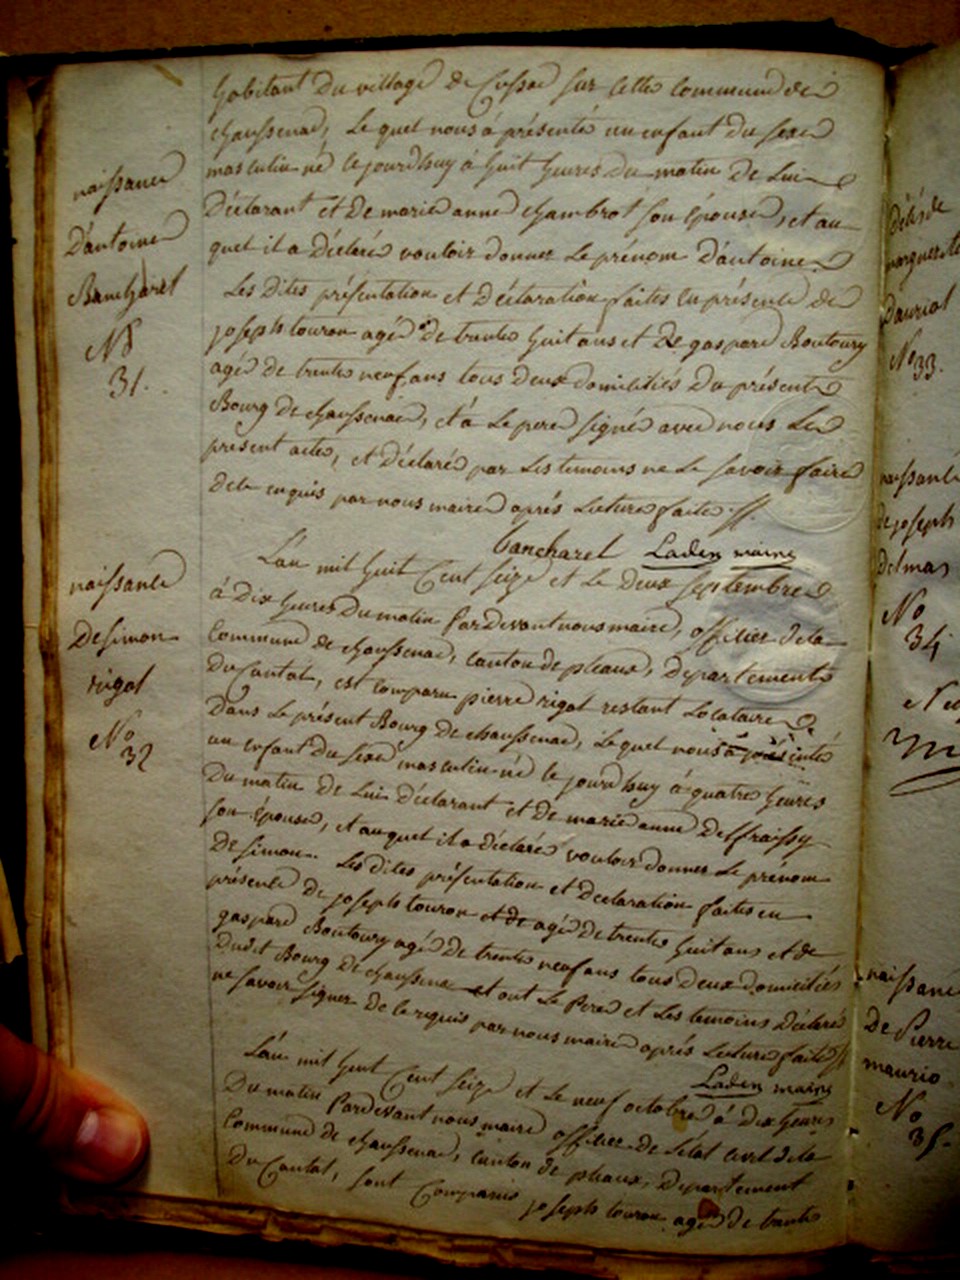 habitant du village de Cussac sur cette commune de
chaussenac, Le quel nous à présenté un enfant du sexe
masculin né le jourdhuy à huit heures du matin de Lui
Déclarant et de marie anne chambrot son épouse, et au
quel il a Déclaré vouloir donner Le prénom D'antoine.
Les Dites présentation et Déclaration faites en présence de
joseph touron agé de trente huit ans et De gaspard Boutoury
agé de trente neuf ans tous Deux domiciliés Du présent
Bourg de chaussenac, et à Le pere signé avec nous Le
present acte, et Déclaré par Les temoins ne Le savoir faire
de ce enquis par nous maire après Lecture faite.
naissance
D'antoine
Bancharel
No
31.
bancharel Laden maire
L'an mil huit Cent seize et Le Deux septembre
à Dix heures Du matin Pardevant nous maire, officier de la
Commune de chaussenac, canton de pleaux, Departement
Du Cantal, est comparu pierre rigal restant Locataire
Dans Le présent Bourg de chaussenac, Lequel nous à présenté
un enfant Du sexe masculin né le jourdhuy à quatre heures
Du matin De Lui Déclarant et De marie anne Delfraissy
son épouse, et auquel il a Déclaré vouloir Donner Le prénom
De simon. Les Dites présentation et Declaration faites en
présence De joseph touron et de agé De trente huit ans et de
gaspard Boutoury agé De trente neuf ans tous Deux Domiciliés
Dudit Bourg De chaussenac et ont Le Pere et Les temoins Déclaré
ne savoir signer De le requis par nous maire après Lecture faite
naissance
De simon
rigal
No
32
Laden maire
L'an mil huit Cent seize et Le neuf octobre à Dix heures
Du matin Pardevant nous maire officier De L'état civil De la
Commune De chaussenac, canton De pleaux, Departement
Du Cantal, sont Comparus joseph touron agé De trente
Décès de
marguerite
Dauriat
No 33.
naissance
de joseph
Delmas
No
34
naissance
De Pierre
maurio
No
35.